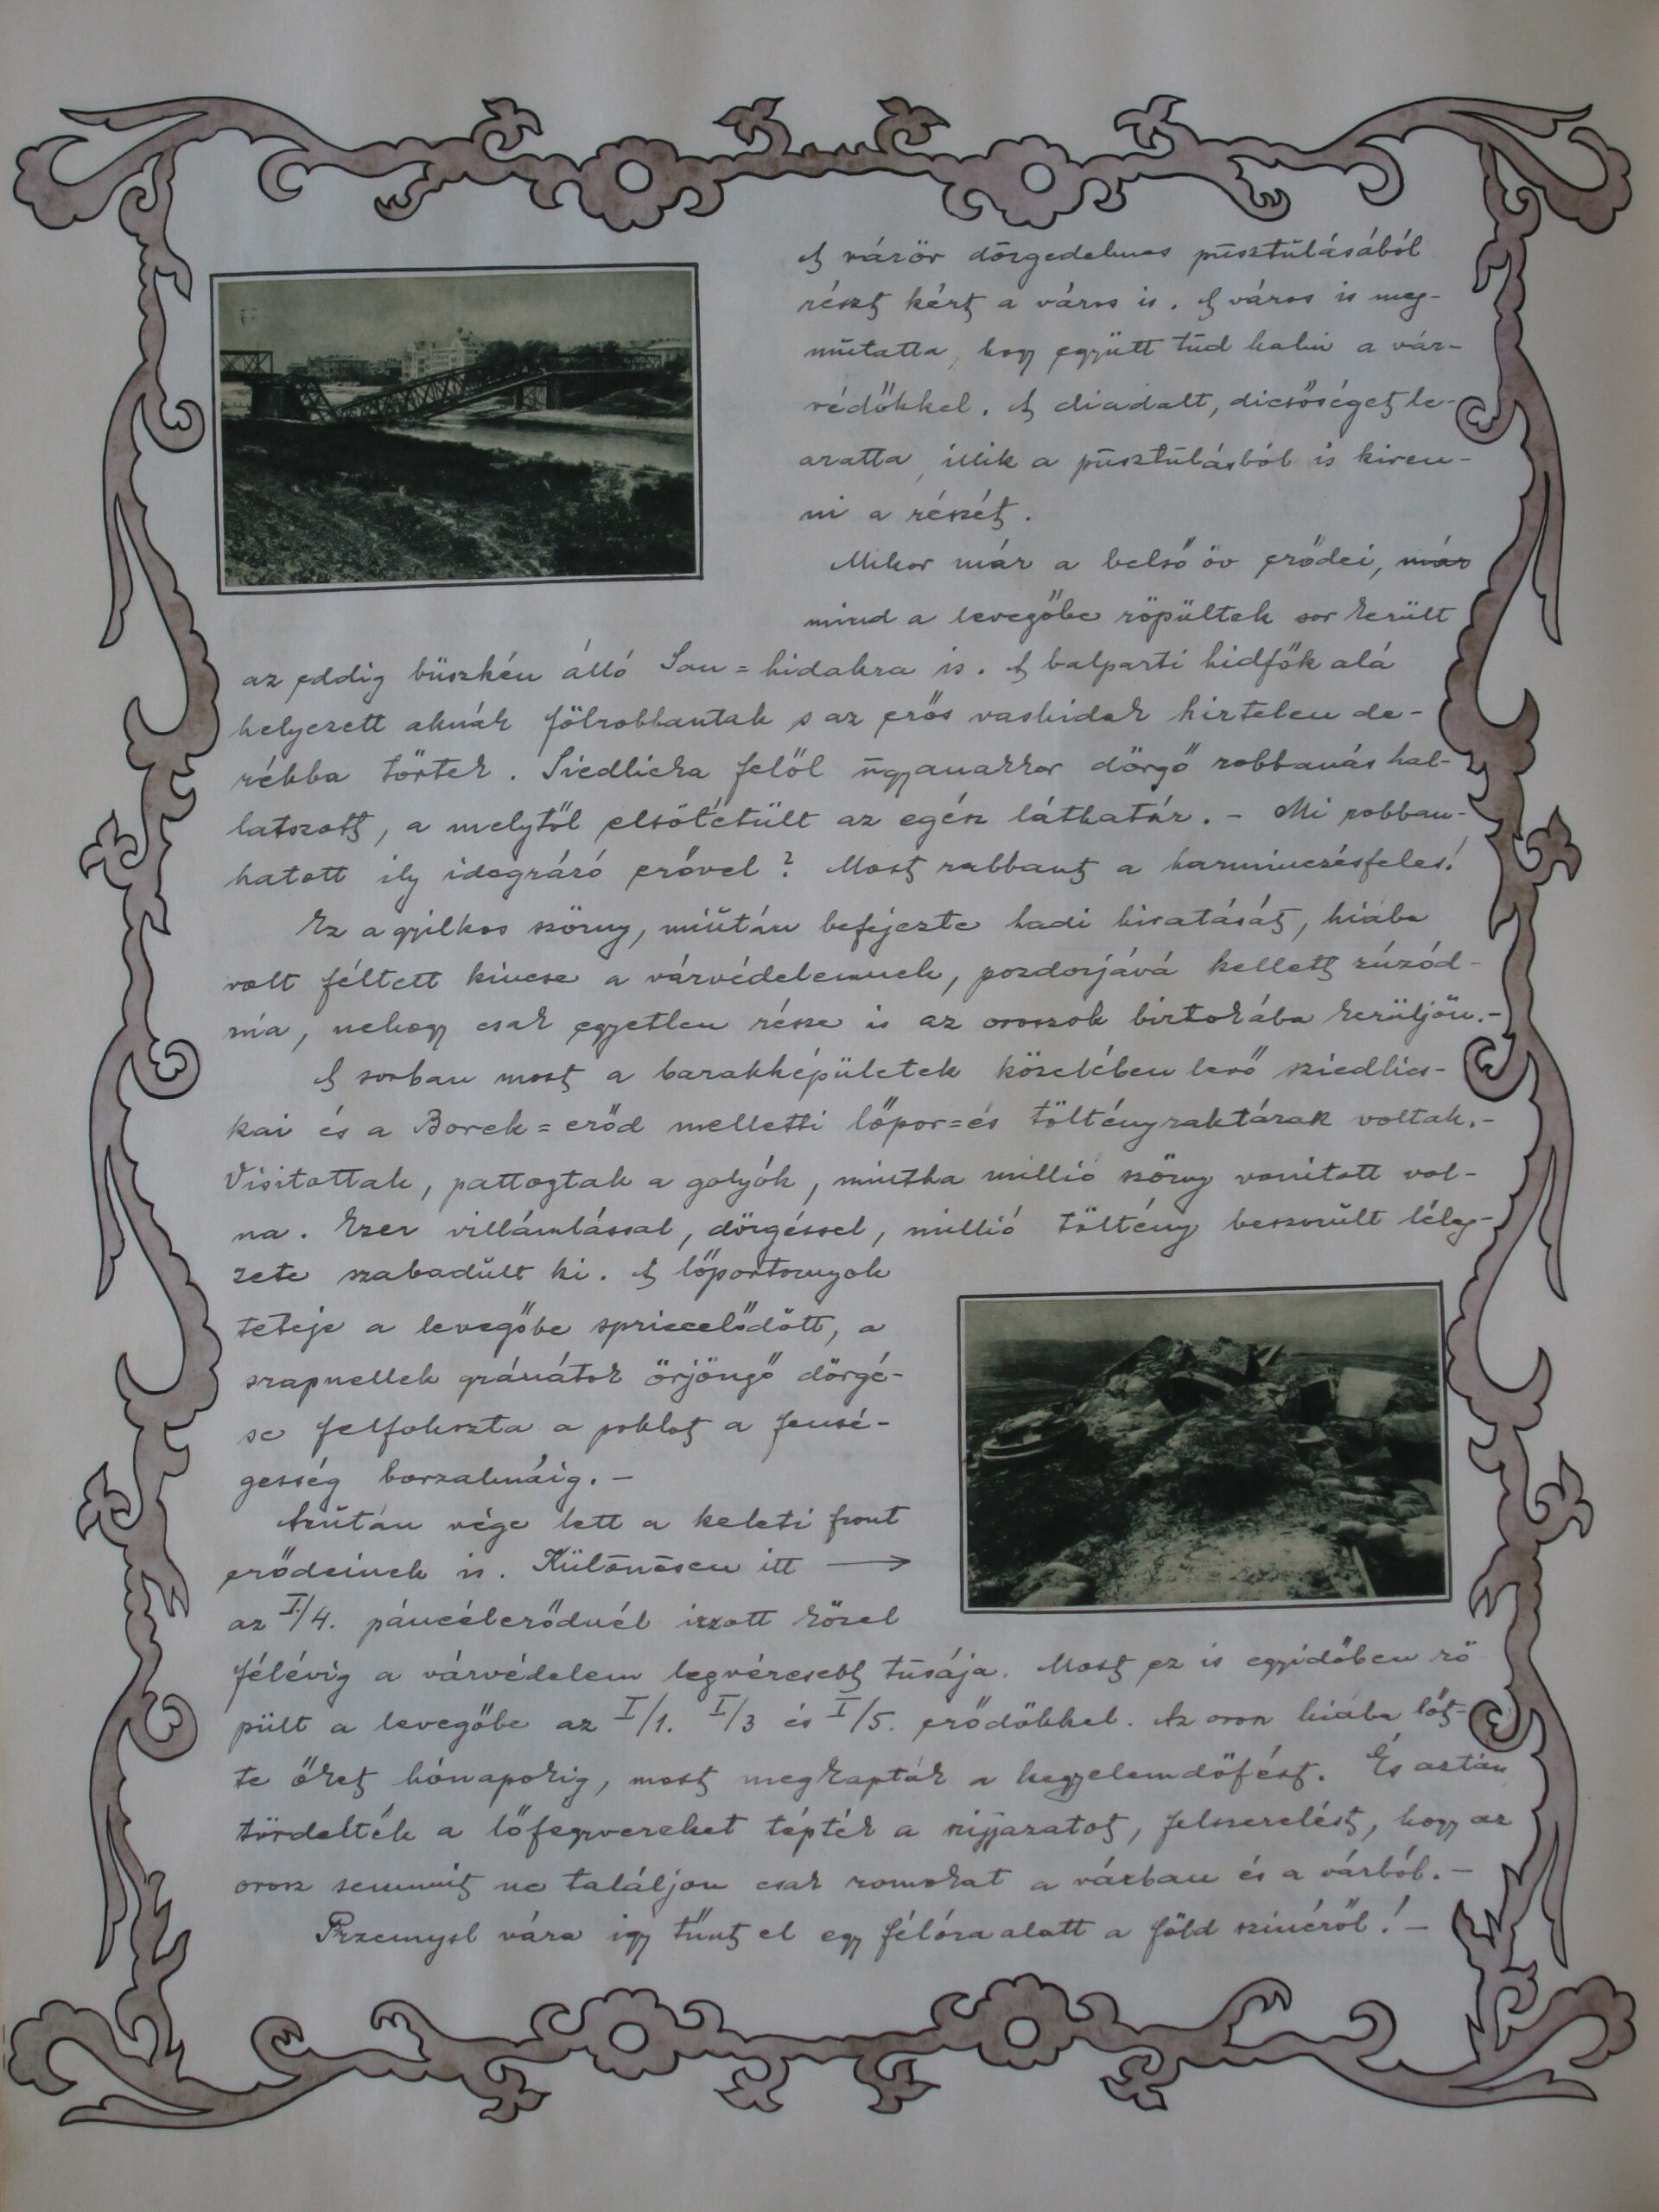 A váröv dörgedelmes pusztulásából
részt kért a város is. A város is meg-
mutatta, hogy együtt tud halni a vár-
védőkkel. A diadalt, dicsőséget le-
aratta, illik a pusztulásból is kiven-
ni a részét.
Mikor már a belső öv erődei, már
mind a levegőbe röpültek sor került
az eddig büszkén álló San=hidakra is. A balparti hidfők alá
helyezett aknák fölrobbantak s az erős vashidak hirtelen de-
rékba törtek. Siedlicka felől ugyanakkor dörgő robbanás hal-
latszott, a melytől elsötétült az egész láthatár. - Mi robban-
hatott ily idegrázó erővel? Most robbant a harminczésfeles!
Ez a gyilkos szörny, miután befejezte hadi hivatását, hiába
volt féltett kincse a várvédelemnek, pozdorjává kellett zúzód-
nia, nehogy csak egyetlen része is az oroszok birtokába kerüljön.-
A sorban most a barakképületek közelében levő sziedlics-
kai és a Borek=erőd melletti lőpor=és töltényraktárak voltak.-
Visitottak, pattogtak a golyók, mintha millió szörny vonitott vol-
na. Ezer villámlással, dörgéssel, millió töltény beszorult léleg-
zete szabadult ki. A lőportornyok
teteje a levegőbe spriccelődött, a
srapnellek gránátok őrjöngő dörgé-
se felfokozta a poklot a fensé-
gesség borzalmáig. -
Azután vége lett a keleti front
erődeinek is. Különösen itt →
az I/4. páncélerődnél izzott közel
félévig a várvédelem legvéresebb tusája. Most ez is egyidőben rö
pült a levegőbe az I/1. I/3 és I/5. erődökkel. Az orosz hiába löt-
te őket hónapokig, most megkapták a kegyelemdöfést. És aztán
tördelték a lőfegyvereket tépték a szijjazatot, felszerelést, hogy az
orosz semmit ne találjon csak romokat a várban és a várból. -
Przemysl vára igy tűnt el egy félóra alatt a föld szinéről! -